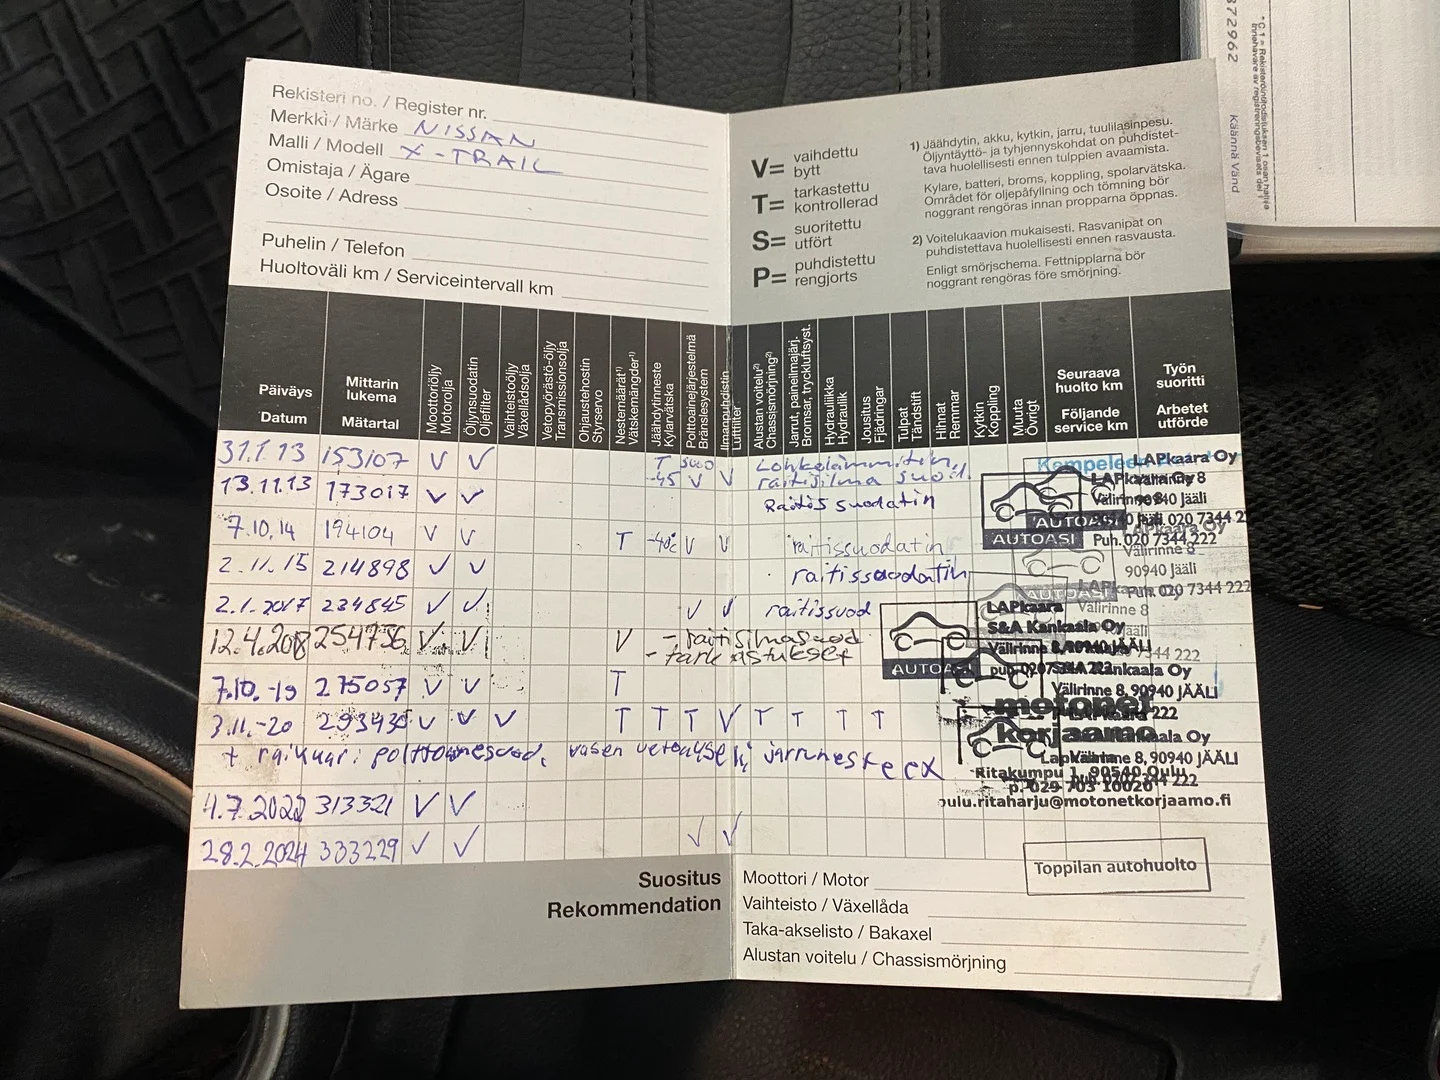 Rekisteri no. / Register nr.
Merkki / Märke NISSAN
Malli / Modell X-TRAIL
Omistaja / Ägare
Osoite / Adress
Puhelin / Telefon
Huoltoväli km / Serviceintervall km
V= vaihdettu
bytt
T= tarkastettu
kontrollerad
S= suoritettu
utfört
P= puhdistettu
rengjorts
1) Jäähdytin, akku, kytkin, jarru, tuulilasinpesu.
Öljyntäyttö- ja tyhjennyskohdat on puhdistet-
tava huolellisesti ennen tulppien avaamista.
Kylare, batteri, broms, koppling, spolarvätska.
Området för oljepåfyllning och tömning bör
noggrant rengöras innan propparna öppnas.
2) Voitelukaavion mukaisesti. Rasvanipat on
puhdistettava huolellisesti ennen rasvausta.
Enligt smörjschema. Fettnipplarna bör
noggrant rengöras före smörjning.
372962
Käännä Vänd
Päiväys
Datum
Mittarin
lukema
Mätartal
Moottoriöljy
Motorolja
Öljynsuodatin
Oljefilter
Vaihteistoöljy
Växellådsolja
Vetopyörästö-öljy
Transmissionsolja
Ohjaustehostin
Styrservo
Nestemäärät1)
Vätskemängder1)
Jäähdytinneste
Kylarvätska
Polttoainejärjestelmä
Bränslesystem
Ilmanpuhdistin
Luftfilter
Alustan voitelu2)
Chassismörjning2)
Jarrut, paineilmajärj.
Bromsar, tryckluftsyst.
Hydrauliikka
Hydraulik
Jousitus
Fjädringar
Tulpat
Tändstift
Hihnat
Remmar
Kytkin
Koppling
Muuta
Övrigt
Seuraava
huolto km
Följande
service km
Työn
suoritti
Arbetet
utförde
31.1.13 153107 V V T -45 suod V V Lohkolämmitin,
raitisilma suod.
13.11.13 173017 V V Raitis suodatin
7.10.14 194104 V V T -40c V V raitissuodatin
2.11.15 214898 V V raitissuodatin
2.1.2017 234845 V V V V raitissuod
12.4.2018 254736 V V V - raitisilmasuod
- tark jistukset
7.10.-19 275057 V V T
3.11.-20 293430 V V V T T T V T T T T
+ polttoainesuod, vasen jarruneste
4.7.2022 313321 V V
28.2.2024 333229 V V V V
LAPkaara Oy
Välirinne 8
90940 Jääli
Puh. 020 7344 222
AUTOASI
AUTOASI
Välirinne 8
90940 Jääli
Puh. 020 7344 222
LAPkaara
S&A Kankaala Oy
Välirinne 8, 90940 JÄÄLI
AUTOASI
Välirinne 8, 90940 JÄÄLI
motonet
korjaamo
Välirinne 8, 90940 JÄÄLI
Ritakumpu 1, 90540 Oulu
p. 029 703 10020
oulu.ritaharju@motonetkorjaamo.fi
Toppilan autohuolto
Suositus
Rekommendation
Moottori / Motor
Vaihteisto / Växellåda
Taka-akselisto / Bakaxel
Alustan voitelu / Chassismörjning